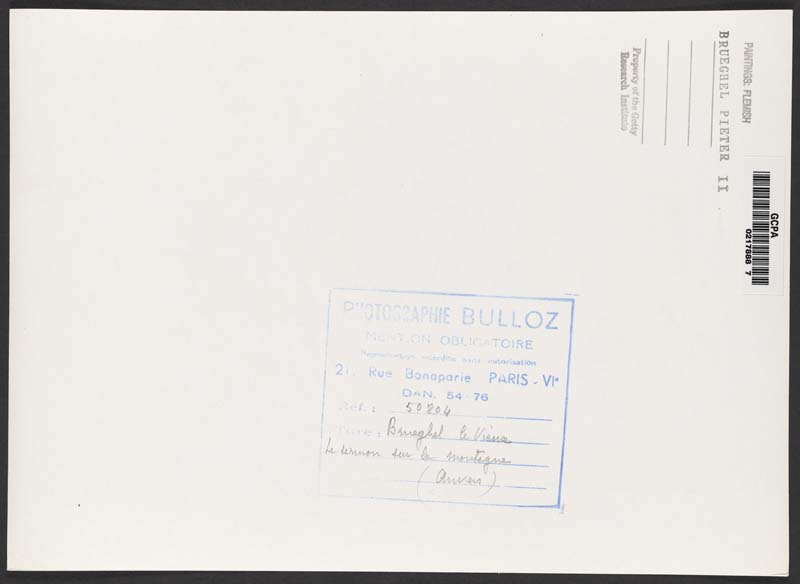 PAINTINGS: FLEMISH
BRUEGHEL PIETER II
Property of the Getty
Research Institute
GCPA
0217888 7
PHOTOGRAPHIE BULLOZ
MENTION OBLIGATOIRE
Reproduction interdite sans autorisation
21, Rue Bonaparte PARIS - VIe
DAN. 54-76
Réf.: 50804
Titre: Brueghel le Vieux
Le sermon sur la montagne
(Anvers)